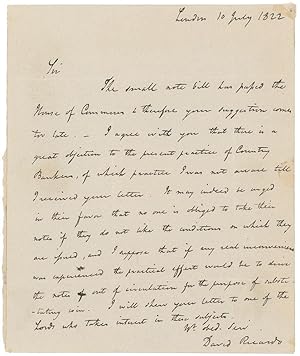 London 10 July 1822
Sir
The small note bill has passed the
House of Commons & therefore your suggestion comes
too late. – I agree with you that there is a
great objection to the present practice of Country
Bankers, of which practice I was not aware till
I received your letter. It may indeed be urged
in their favor that no one is obliged to take their
notes if they do not like the conditions on which they
are issued, and I suppose that if any real inconvenience
was experienced the practical effect would be to drive
the notes out of circulation for the purpose of substi-
tuting coin. I will shew your letter to one of the
Lords who takes interest in these subjects.
Yr obed. Ser
David Ricardo